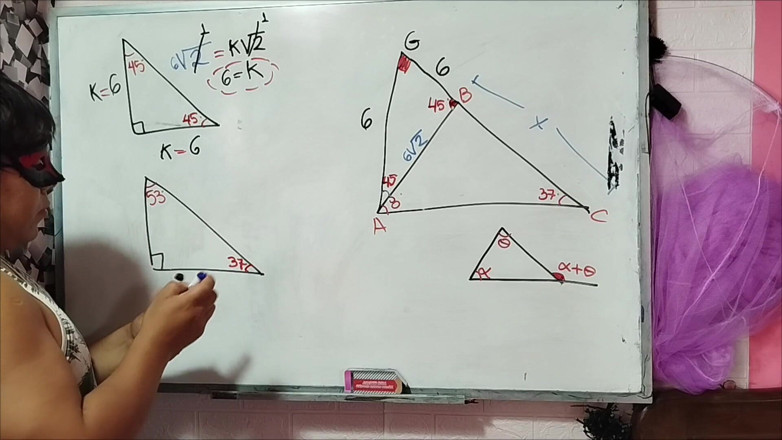 45
K=6
45
K=6
6√2 = K√2
1
1
6=K
53
37
G
6
45 B
6
6√2
x
45
8
37
A
C
θ
α
α+θ